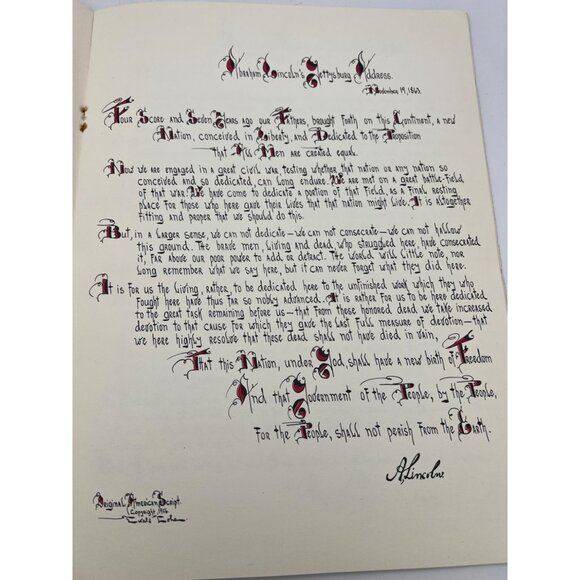 Abraham Lincoln's Gettysburg Address.
November 19, 1863.
Four Score and Seven Years ago our Fathers, brought forth on this Continent, a new
Nation, conceived in Liberty, and Dedicated to the Proposition
that All Men are created equal.
Now we are engaged in a great civil war, testing whether that nation or any nation so
conceived and so dedicated, can long endure. We are met on a great battle-field
of that war. We have come to dedicate a portion of that field, as a final resting
place for those who here gave their lives that that nation might live. It is altogether
fitting and proper that we should do this.
But, in a larger sense, we can not dedicate—we can not consecrate—we can not hallow
this ground. The brave men, living and dead, who struggled here, have consecrated
it, far above our poor power to add, or detract. The world will little note, nor
long remember what we say here, but it can never forget what they did here.
It is for us the living, rather, to be dedicated here to the unfinished work which they who
fought here have thus far so nobly advanced. It is rather for us to be here dedicated
to the great task remaining before us—that from these honored dead we take increased
devotion to that cause for which they gave the last full measure of devotion—that
we here highly resolve that these dead shall not have died in vain,
That this Nation, under God, shall have a new birth of Freedom
And that Government of the People, by the People,
for the People, shall not perish from the Earth.
A. Lincoln.
Original American Script.
Copyright